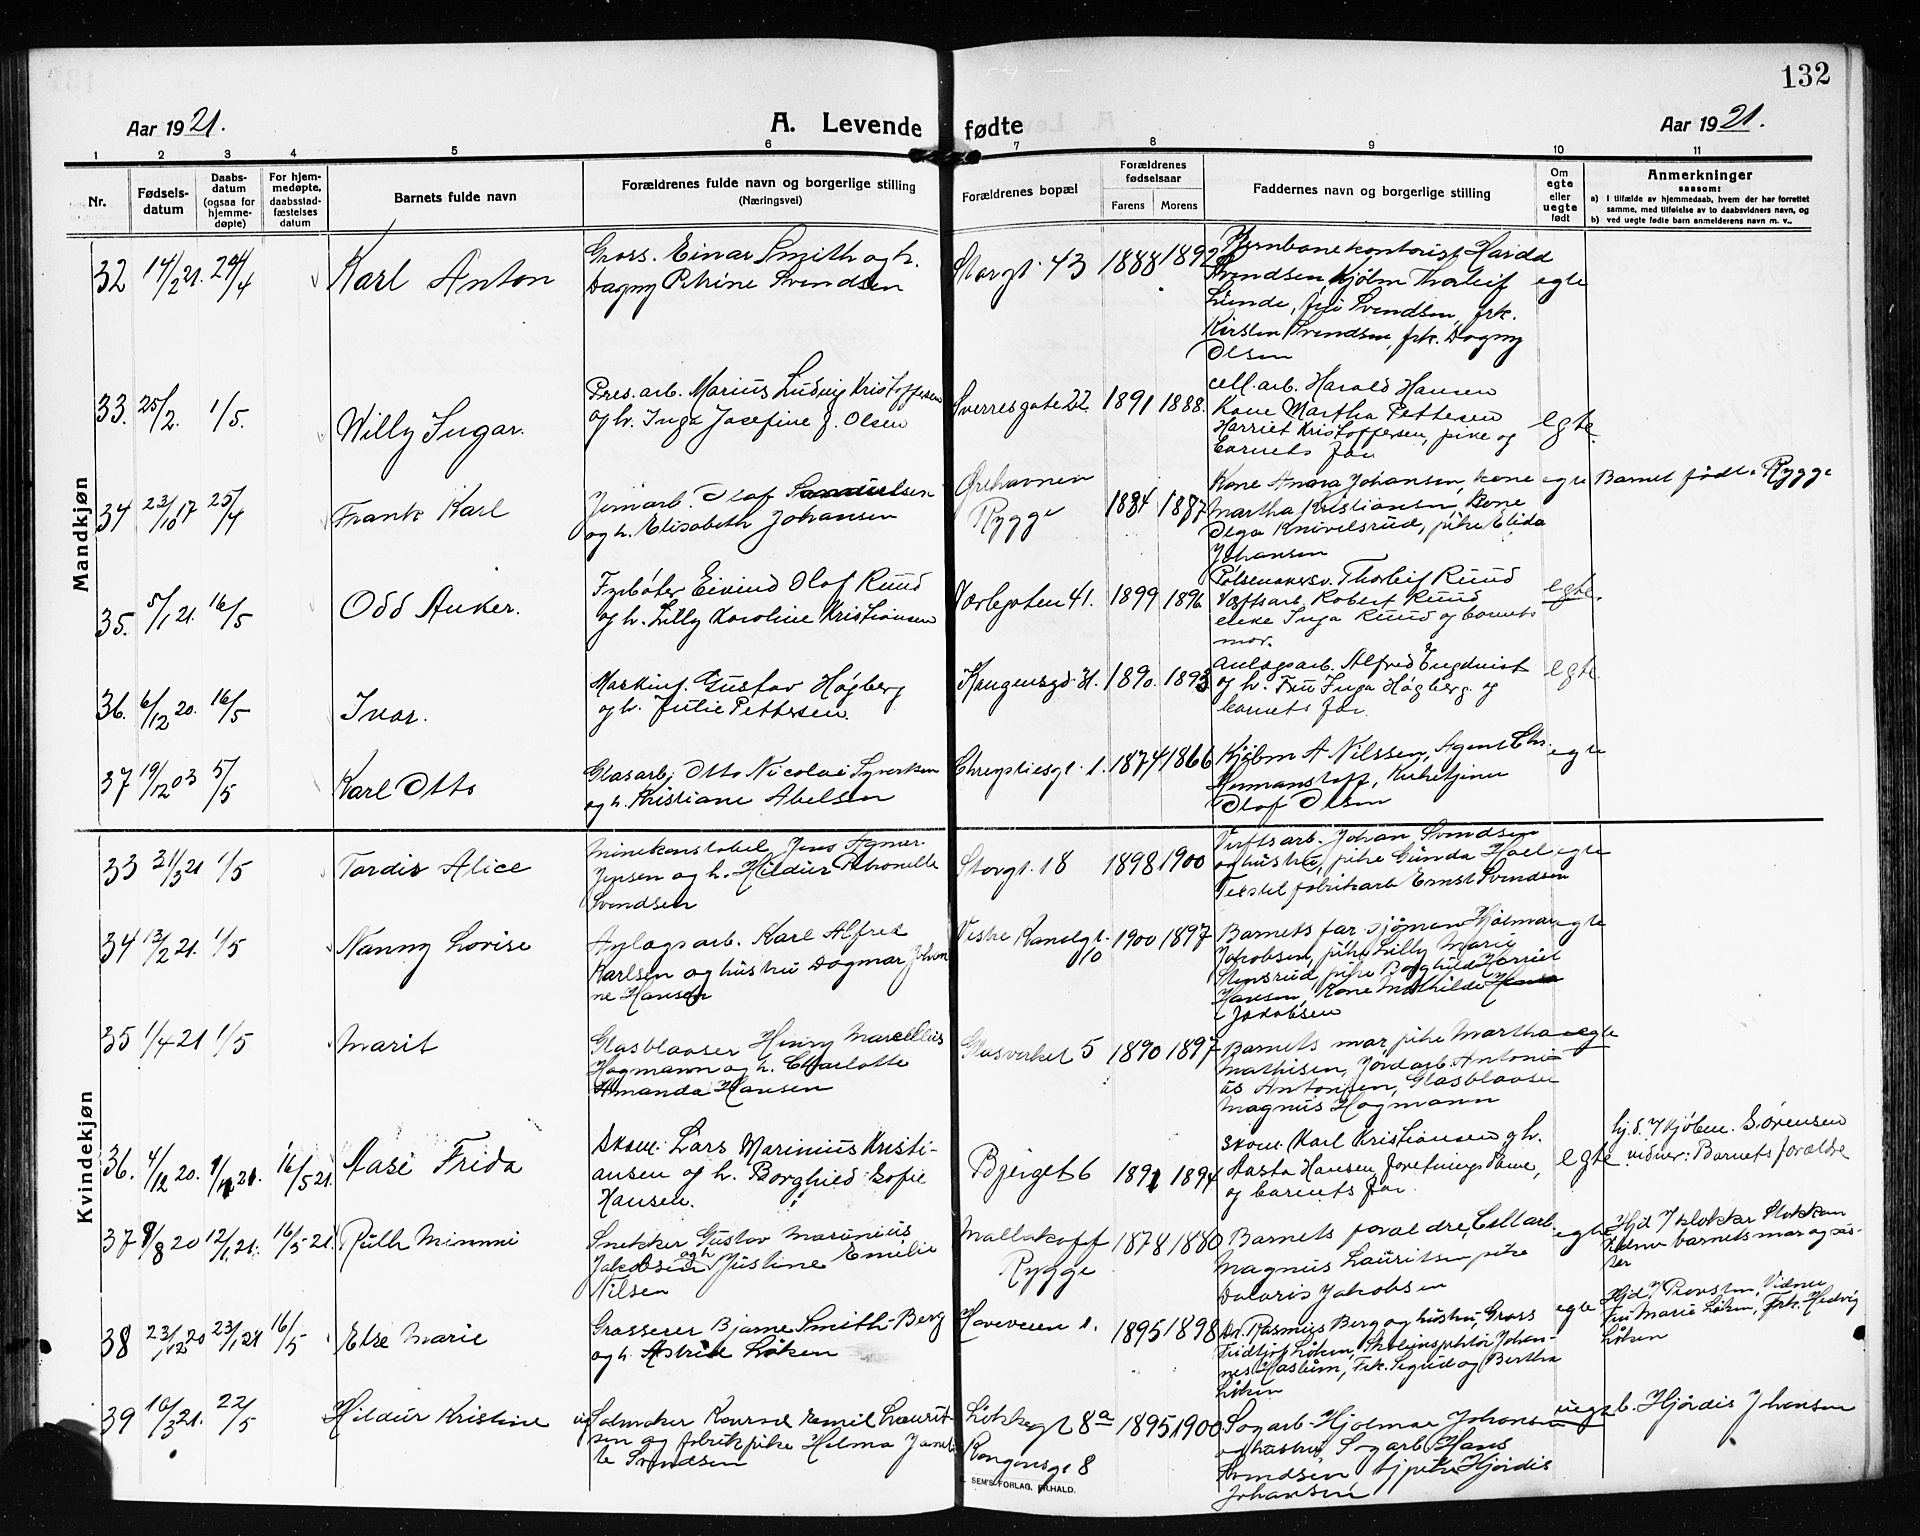 132
Aar 1921.
A. Levende fødte
Aar 1921.
1 2 3 4 5 6 7 8 9 10 11
Nr.
Fødselsdatum
Daabsdatum (ogsaa for hjemmedøpte)
For hjemmedøpte, daabsstadfæstelses datum
Barnets fulde navn
Forældrenes fulde navn og borgerlige stilling
(Næringsvei)
Forældrenes bopæl
Forældrenes fødselsaar
Farens Morens
Faddernes navn og borgerlige stilling
Om egte eller uegte født
Anmerkninger
saasom:
a) I tilfælde av hjemmedaab, hvem der har forrettet
samme, med tilføielse av to daabsvidners navn, og
b) ved uegte fødte barn anmelderens navn m. v..
Mandkjøn
32 14/2 21. 24/4 Karl Anton
Gross. Einar Smith og h.
Dagny Petrine Svendsen
Storgt. 43 1888 1892
Jernbanekontorist Harald
Svendsen, Kjøbm Thorleif
Lunde, fru Svendsen, frk.
Kirsten Svendsen, frk. Dagny
Olsen
egte
33. 25/2. 1/5. Willy Ingar.
Pres. arb. Marius Ludvig Kristoffersen
og h. Inga Josefine J. Olsen
Sverresgate 22. 1891 1888.
cell. arb. Harald Hansen
Kone Martha Pettersen
Harriet Kristoffersen, pike og
barnets far
egte.
34 23/10 17 25/4 Frank Karl
Jernarb. Olaf Samuelsen
og h. Elisabeth Johansen
Ørehavnen
Rygge
1884 1887
Kone Anna Johansen, kone
Martha Kristiansen, Kone
Olga Knivelsrud, pike Elida
Johansen
egte
Barnet født i Rygge
35. 5/1 21. 16/5 Odd Anker.
Fyrbøter Eivind Olaf Ruud
og h. Lilly Karoline Kristiansen
Varlegaten 41. 1899 1896
Pølsemakersv. Thorleif Ruud
Værftsarb. Robert Ruud
enke Inga Ruud og barnets
mor.
egte.
36. 6/12 20. 16/5 Ivar.
Maskinf. Gustav Høgberg
og h. Julie Pettersen.
1890. 1893
Anlægsarb. Alfred Engdvist
og h. Fru Inga Høgberg. og
barnets far
egte.
37 19/12 03 5/5 Karl Otto
Glasarb. Otto Nicolai Syversen
og h. Kristiane Abelsen
1. 1874 1866
Kjøbm A Nilssen, Agent Chr.
Hermanstoff, Kirketjener
Olaf Olsen
egte
Kvindekjøn
33 21/3 21 1/5 Tordis Alice
Minekonstabel Jens
Jensen og h. Hildur Petronelle
Svendsen
Storgt. 18 1898 1900
Verftsarb. Johan Svendsen
og hustru, pike Gunda Hoel
Tekstilfabrikarb Ernst Svendsen
egte
34 13/2 21. 1/5 Nanny Lovise
Anlægsarb. Karl Alfred
Karlsen og hustru Dagmar Johan
ne Hansen
Vestre Kanalgt.
10
1900 1897
Barnets far, sjøman Hjalmar
Jakobsen, pike Lilly Marie
Stensrud, pike Borghild Harriet
Hansen, Kone Mathilde
Jakobsen
egte
35 1/4 21 1/5 Marit
Glasblaaser Henry Marcellius
Hagmann og h. Charlotte
Amanda Hansen
Glasverket 5 1890 1897
Barnets mor, pike Martha
Mathisen, Jordarb. Antoni
us Antonisen, Glasblaaser
Magnus Hagmann
egte
36. 4/12 20. 21. 16/5 21. Aase Frida
Skom. Lars Marinius Kristi-
ansen og h. Borghild Sofie
Hansen.
Bjerget 6 1891 1894
Skom. Karl Kristiansen og h.
Aasta Hansen, Forretnings Dame,
og barnets far
egte
hj. d. Kjøbm. Sørensen
vidner: Barnets forældre
37 9/8 20 12/1 21. 16/5 21. Ruth Mimmi
Snekker Gustav Marinius
Jakobsen og h Justine Emilie
Nilsen
Mallakoff
Rygge
1878 1880
Barnets forældre, Cellarb.
Magnus Lauritsen, pike
Dalaris Jakobsen
egte
Hjd v/ klokker Stokkan
Vidner barnets mor og søs-
ter
38 23/12 20 23/1 21 16/5 Else Marie
Grosserer Bjarne Smith-Berg
og h. Astrid Løken
Haveveien 1. 1895 1898
Dr. Rasmus Berg og hustru, Gross
Fridtjof Løken, Skoleinspektør Johan-
nes Haslum, Frk. Sigrid og Bertha
Løken
egte
Hjd v/ Provsten, Vidner
Fru Marie Løken, Frk. Hedvig
Løken
39 16/3 21. 22/5 Hildur Kristine
Salmaker Konrad Emil Laurit-
sen og fabrikpike Helma Janet
te Svendsen
8a
Kongensgt 8
1895 1900
Sagarb. Hjalmar Johansen
og hustru, Sagarb Hans
Svendsen, pike Hjørdis
Johansen
uegte
b. Hjørdis Johansen
SEM'S FORLAG, FR.HALD.